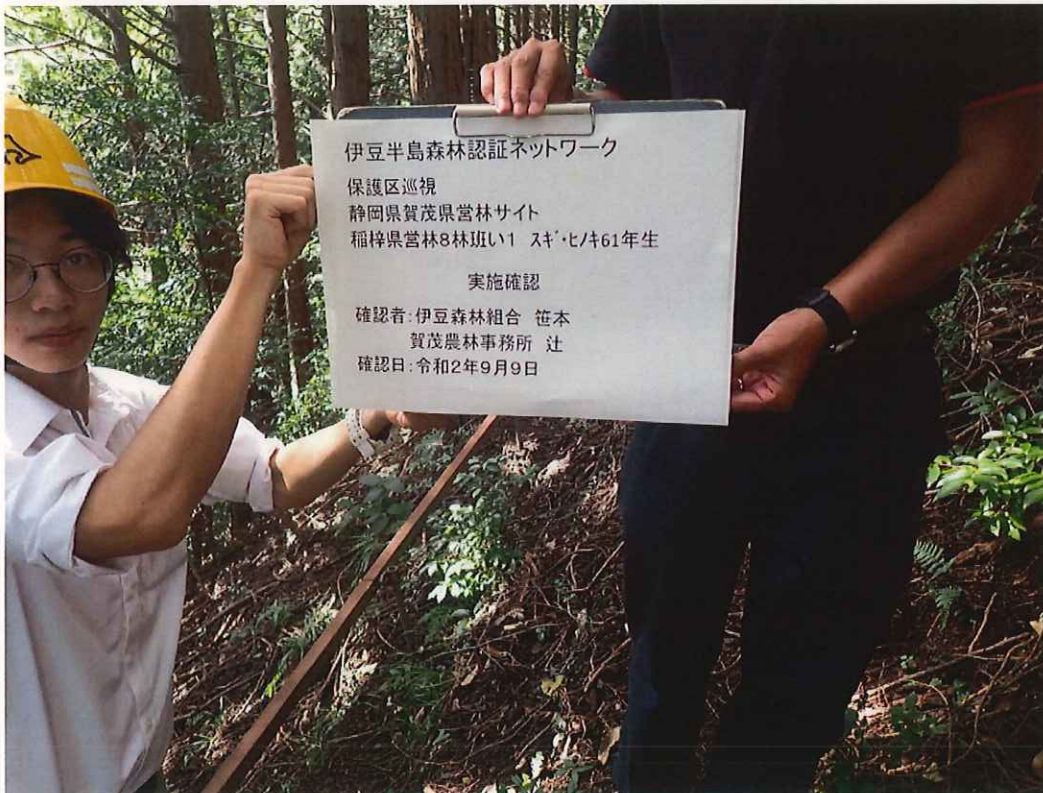 伊豆半島森林認証ネットワーク
保護区巡視
静岡県賀茂県営林サイト
稲梓県営林8林班い1 スギ・ヒノキ61年生
実施確認
確認者:伊豆森林組合 笹本
賀茂農林事務所 辻
確認日:令和2年9月9日